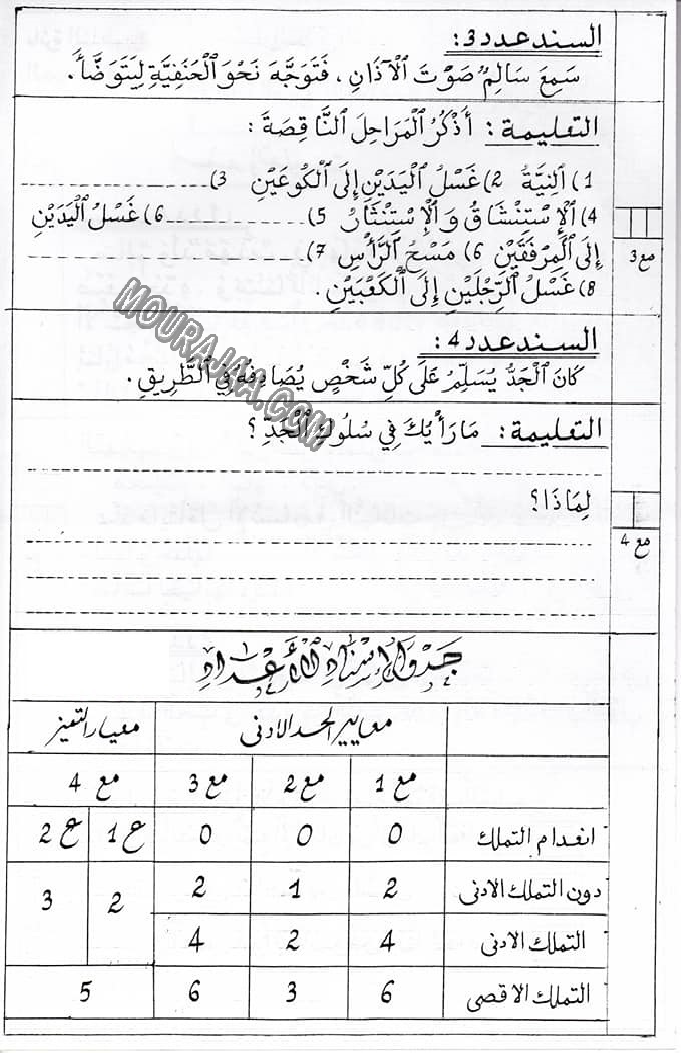 السند عدد 3:
سَمِعَ سَالِمٌ صَوْتَ الْآذَانِ ، فَتَوَجَّهَ نَحْوَ الْحَنَفِيَّةِ لِيَتَوَضَّأَ.
التعليمة : أَذْكُرُ الْمَرَاحِلَ النَّاقِصَةَ :
1) النِّيَّةُ 2) غَسْلُ الْيَدَيْنِ إِلَى الْكُوعَيْنِ 3) ................
4) الْإِسْتِنْشَاقُ وَ الْإِسْتِنْثَارُ 5) ................ 6) غَسْلُ الْيَدَيْنِ
إِلَى الْمِرْفَقَيْنِ 6) مَسْحُ الرَّأْسِ 7) ................
8) غَسْلُ الرِّجْلَيْنِ إِلَى الْكَعْبَيْنِ .
مع 3
السند عدد 4:
كَانَ الْجَدُّ يُسَلِّمُ عَلَى كُلِّ شَخْصٍ يُصَادِفُهُ فِي الطَّرِيقِ .
التعليمة : مَا رَأْيُكَ فِي سُلُوكِ الْجَدِّ ؟
لِمَاذَا ؟
مع 4
MOURAJAA.COM
جدول إسناد الأعداد
معايير الحد الادنى معيار التميز
مع 1 مع 2 مع 3 مع 4
انعدام التملك 0 0 0 ع 1 ع 2
دون التملك الادنى 2 1 2 2 3
التملك الادنى 4 2 4
التملك الاقصى 6 3 6 5